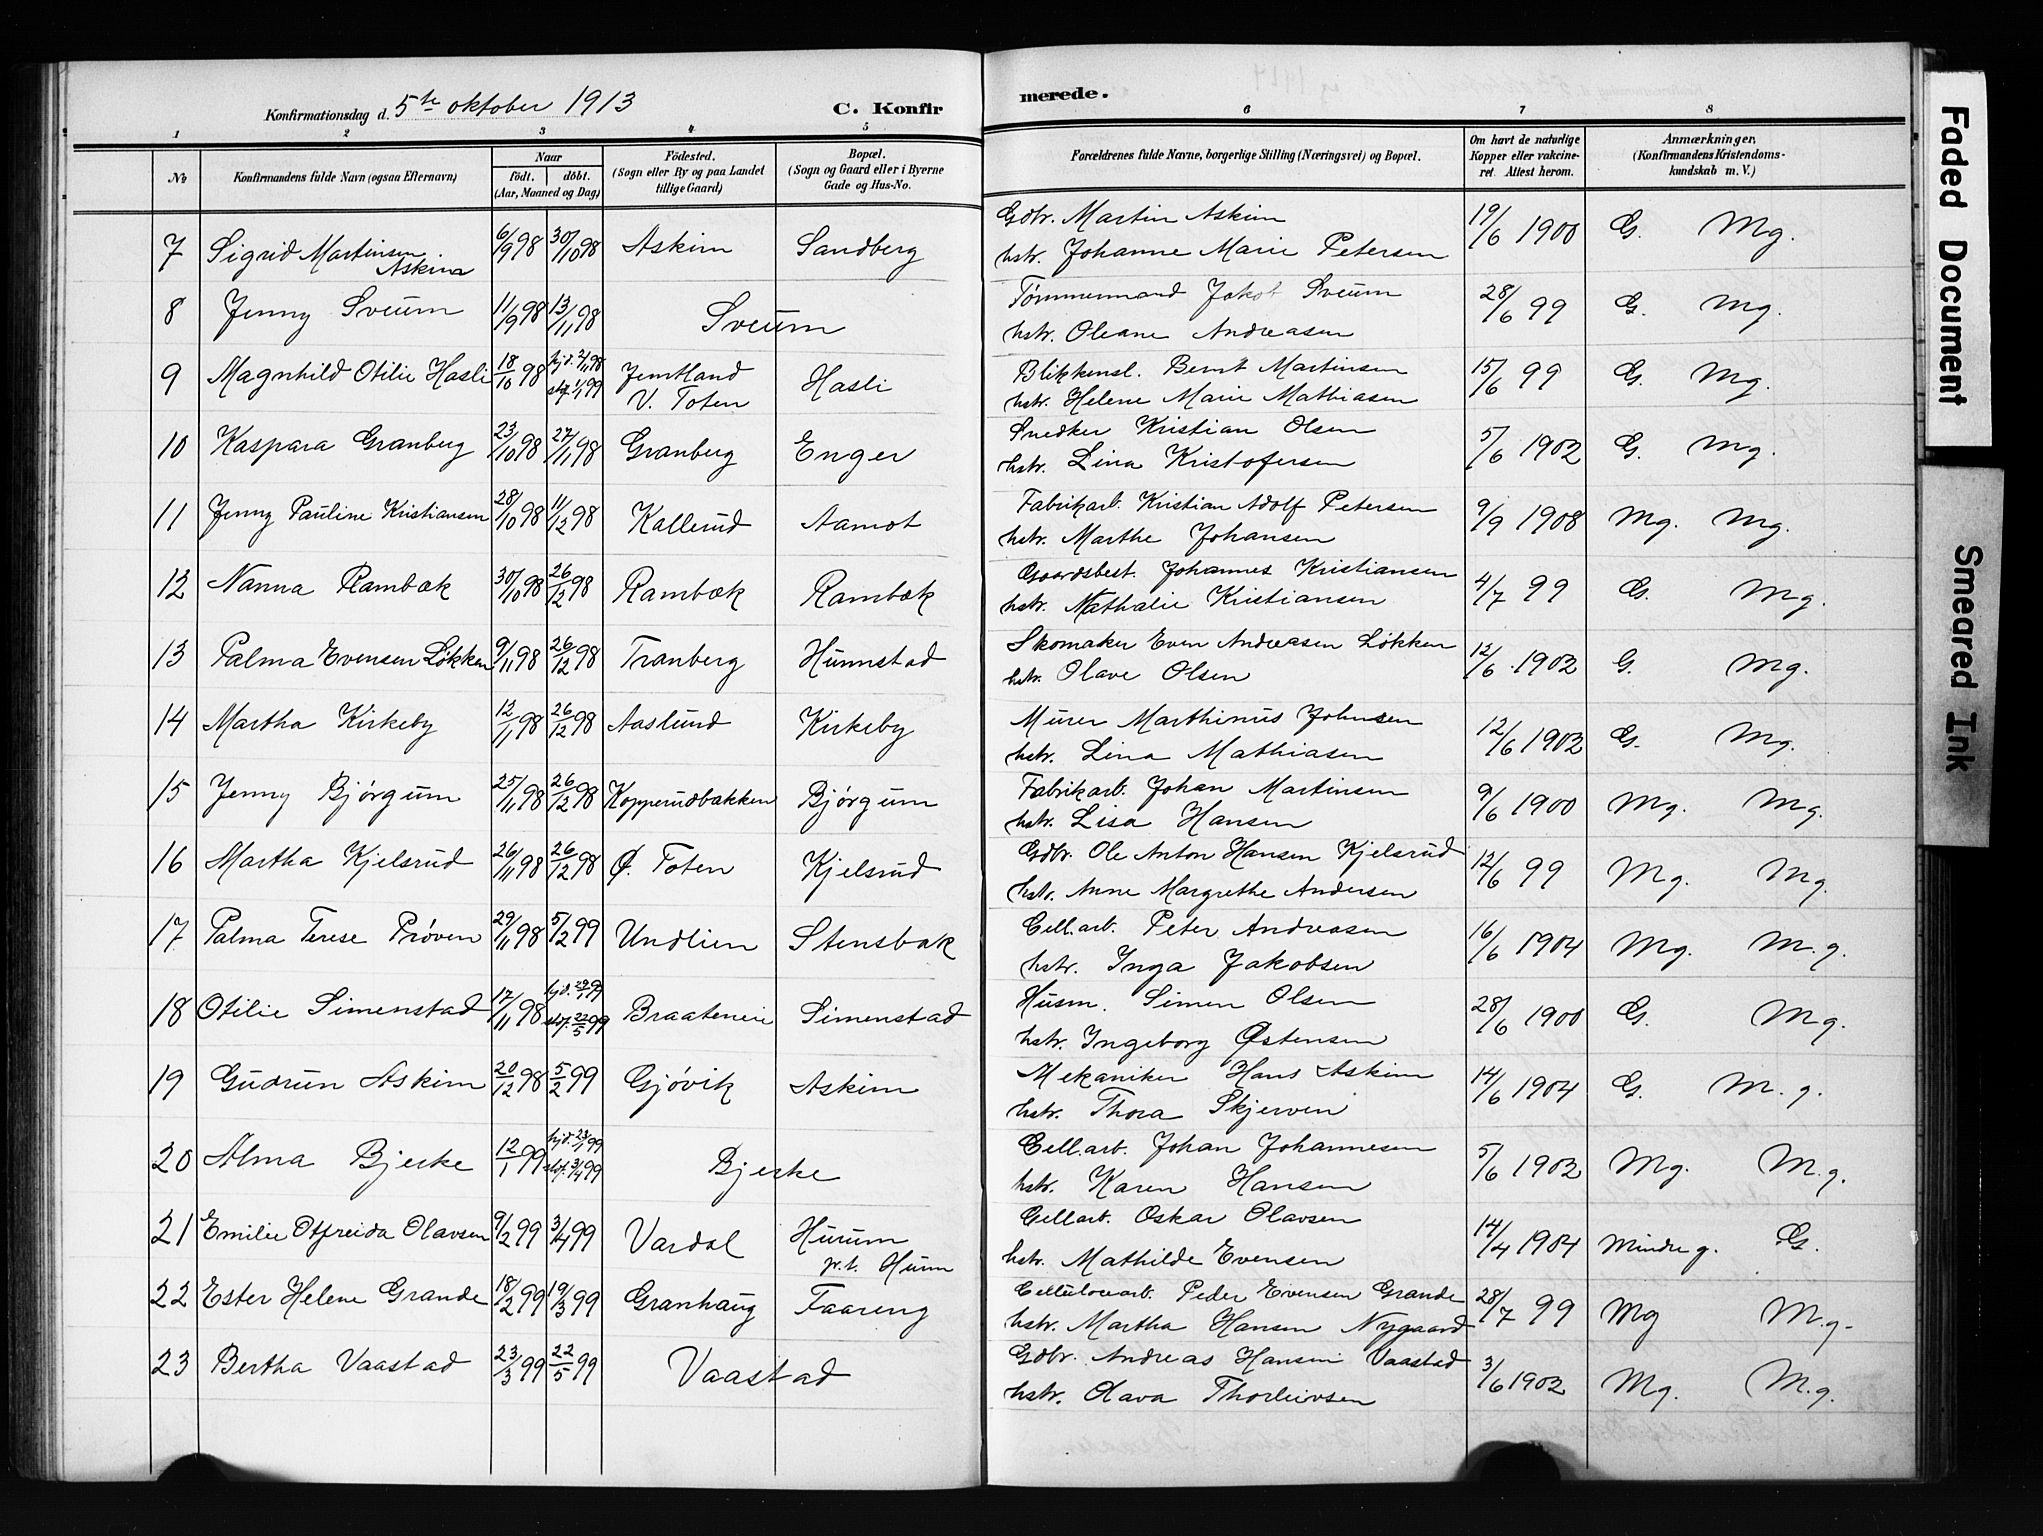 Konfirmationsdag d. 5te oktober 1913 C. Konfirmerede.
1 2 3 4 5 6 7 8
No Konfirmandens fulde Navn (ogsaa Efternavn) Naar födt. döbt. (Aar, Maaned og Dag) Födested. (Sogn eller By og paa Landet tillige Gaard) Bopæl. (Sogn og Gaard eller i Byerne Gade og Hus-No. Forældrenes fulde Navne, borgerlige Stilling (Næringsvei) og Bopæl. Om havt de naturlige Kopper eller vakcineret. Attest herom. Anmærkninger, (Konfirmandens Kristendomskundskab m. V.)
7 Sigrid Martinsen Askim 6/9 98 30/10 98 Askim Sandberg Gdbr. Martin Askim 19/6 1900 G. Mg.
hstr. Johanne Marie Petersen
8 Jenny Sveum 11/9 98 13/11 98 Sveum Tømmermand Jakob Sveum 28/6 99 G. Mg.
hstr. Oleane Andreasen
9 Magnhild Otilie Hasli 18/10 98 hjd. 2/11 98 stf. 1/1 99 Jemtland V. Toten Hasli Blikkensl. Bernt Martinsen 15/6 99 G. Mg.
hstr. Helene Marie Mathiasen
10 Kaspara Granberg 23/10 98 27/11 98 Granberg Enger Snedker Kristian Olsen 5/6 1902 G. Mg.
hstr. Lina Kristofersen
11 Jenny Pauline Kristiansen 28/10 98 11/12 98 Kallerud Aamot Fabrikarb. Kristian Adolf Petersen 9/9 1908 Mg. Mg.
hstr. Marthe Johansen
12 Nanna Rambæk 30/10 98 26/12 98 Rambæk Rambæk Gaardsbest. Johannes Kristiansen 4/7 99 G. Mg.
hstr. Nathalie Kristiansen
13 Palma Evensen Løkken 9/11 98 26/12 98 Tranberg Hunnstad Skomaker Even Andreasen Løkken 12/6 1902 G. Mg.
hstr. Olave Olsen
14 Martha Kirkeby 12/11 98 26/12 98 Aaslund Kirkeby Murer Marthinus Johnsen 12/6 1902 G. Mg.
hstr. Lina Mathiasen
15 Jenny Bjørgum 25/11 98 26/12 98 Kopperudbakken Bjørgum Fabrikarb. Johan Martinsen 9/6 1900 Mg. Mg.
hstr. Lisa Hansen
16 Martha Kjelsrud 26/11 98 26/12 98 Ø. Toten Kjelsrud Gdbr. Ole Anton Hansen Kjelsrud 12/6 99 Mg. Mg.
hstr. Anne Margrethe Andersen
17 Palma Terese Prøven 29/11 98 5/2 99 Undlien Stensbæk Cell.arb. Peter Andreasen 16/6 1904 Mg. M.g.
hstr. Inga Jakobsen
18 Otilie Simenstad 17/11 98 hjd. 29/1 99 stf. 22/5 99 Braateneie Simenstad Husm. Simen Olsen 28/6 1900 G. Mg.
hstr. Ingeborg Østensen
19 Gudrun Askim 20/12 98 5/2 99 Gjøvik Askim Mekaniker Hans Askim 14/6 1904 G. M.g.
hstr. Thora Skjerven
20 Alma Bjerke 12/1 99 hjd. 23/1 99 stf. 3/4 99 Bjerke Cell.arb. Johan Johannesen 5/6 1902 Mg. M.g.
hstr. Karen Hansen
21 Emilie Otfreida Olavsen 9/2 99 3/4 99 Vardal Hurum p.t. Hunn Cellarb. Oskar Olavsen 14/4 1904 Mindre g. G.
hstr. Mathilde Evensen
22 Ester Helene Grande 18/2 99 19/3 99 Granhaug Faareng Cellulosearb. Peder Evensen Grande 28/7 99 Mg M.g.
hstr. Martha Hansen Nygaard
23 Bertha Vaastad 23/3 99 22/5 99 Vaastad Gdbr. Andreas Hansen Vaastad 3/6 1902 Mg. M.g.
hstr. Olava Thorleivsen
Faded Document
Smeared Ink